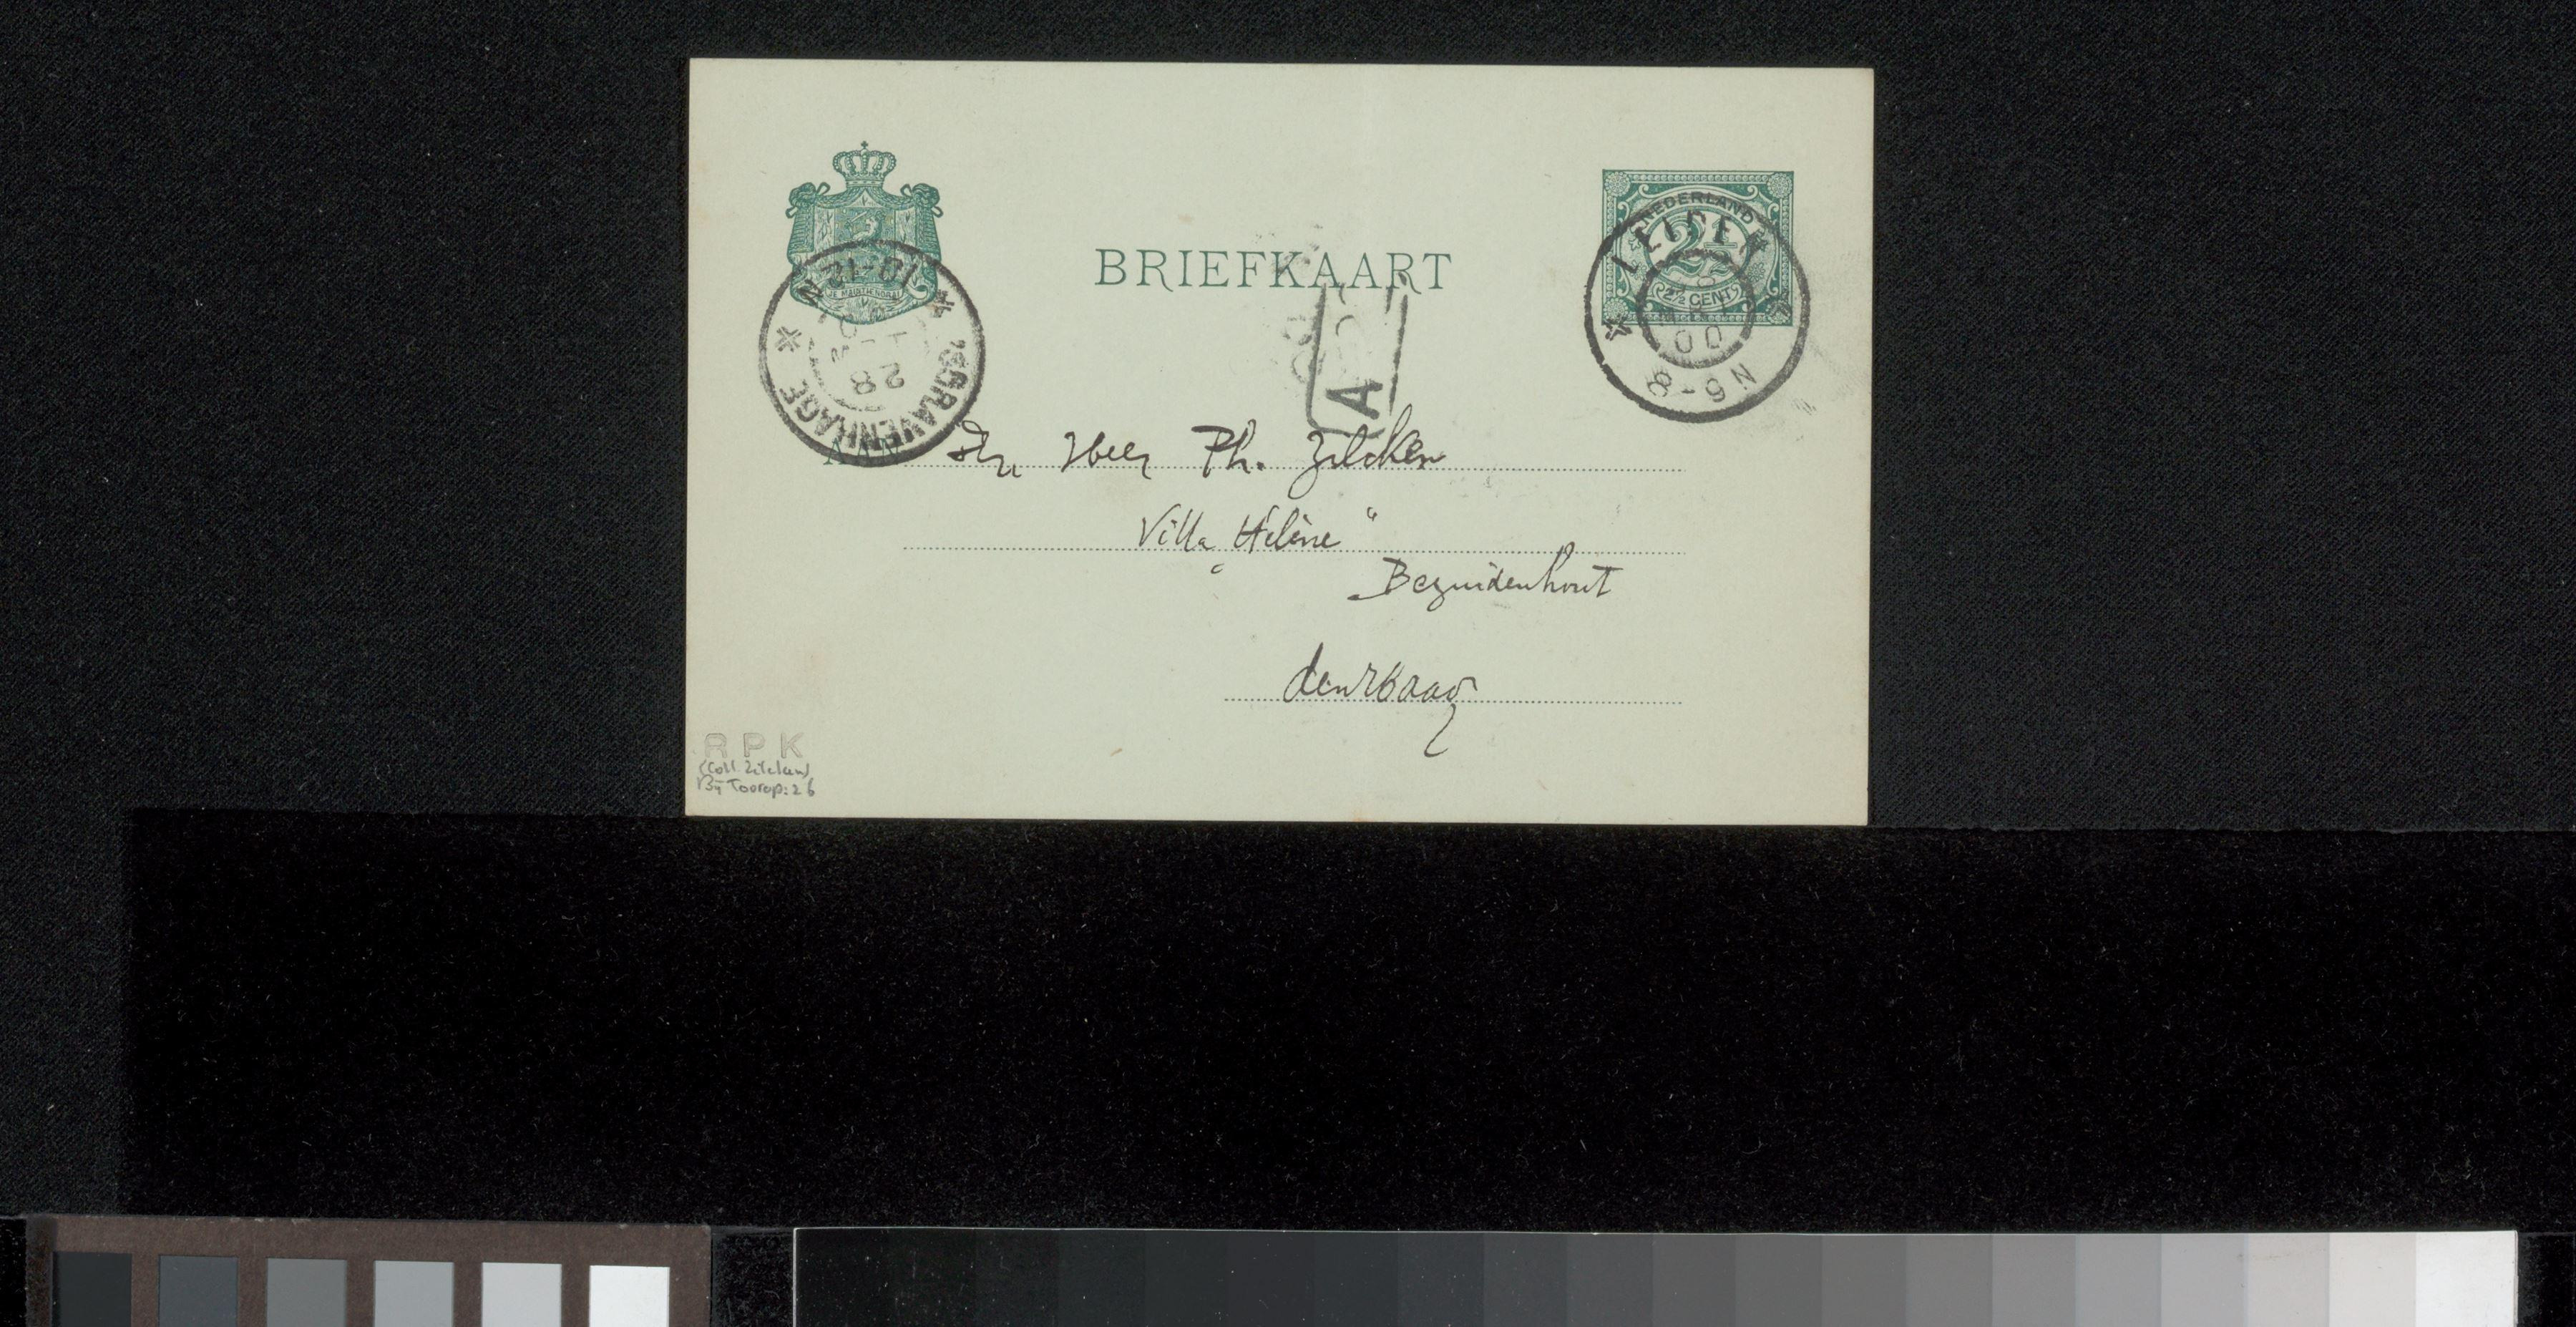 BRIEFKAART
NEDERLAND
2½
2½ CENT
LEIDEN
00
8-9N
JE MAINTIENDRAI
10-12 N
28
'SGRAVENHAGE
A
AAN
Den Heer Ph. Zilcken
Villa „Hélène"
Bezuidenhout
den Haag
R P K
(Coll. Zilcken)
Bij Toorop: 26